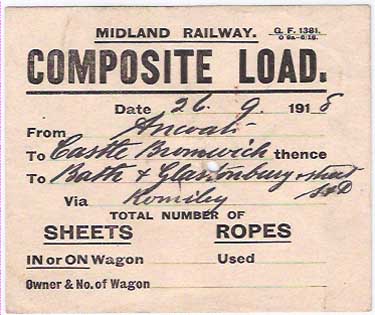 MIDLAND RAILWAY.
G. F. 1381.
COMPOSITE LOAD.
Date 26. 9. 1918
From Ancoats
To Castle Bromwich thence
To Bath & Glastonbury
S&D
Via Romiley
TOTAL NUMBER OF
SHEETS ROPES
IN or ON Wagon Used
Owner & No. of Wagon